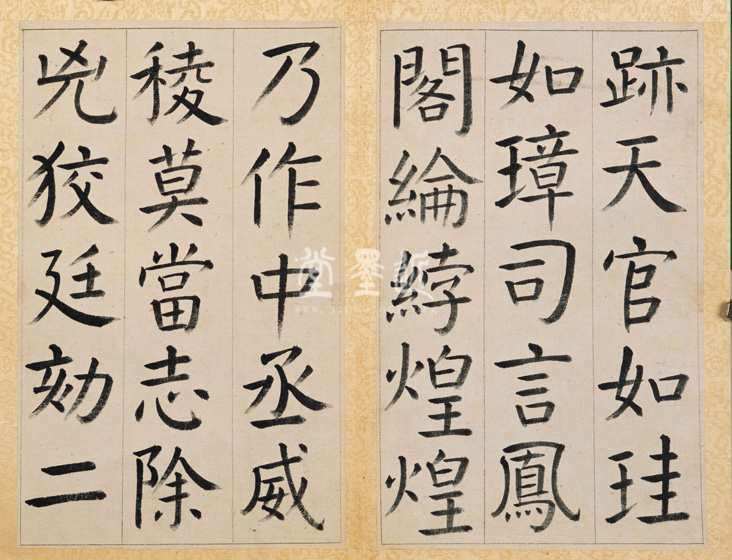 跡天官如珪
如璋司言鳳
閣綸綍煌煌
乃作中丞威
稜莫當志除
兇狡廷劾二